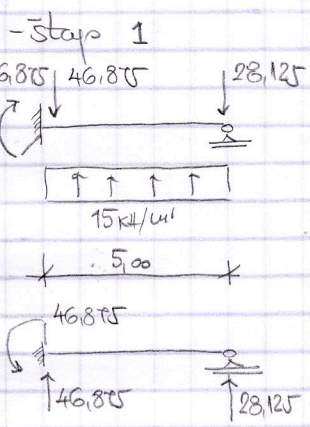 -Štap 1
6,875 46,875 28,125
15 kN/m'
5,00
46,875
46,875 28,125